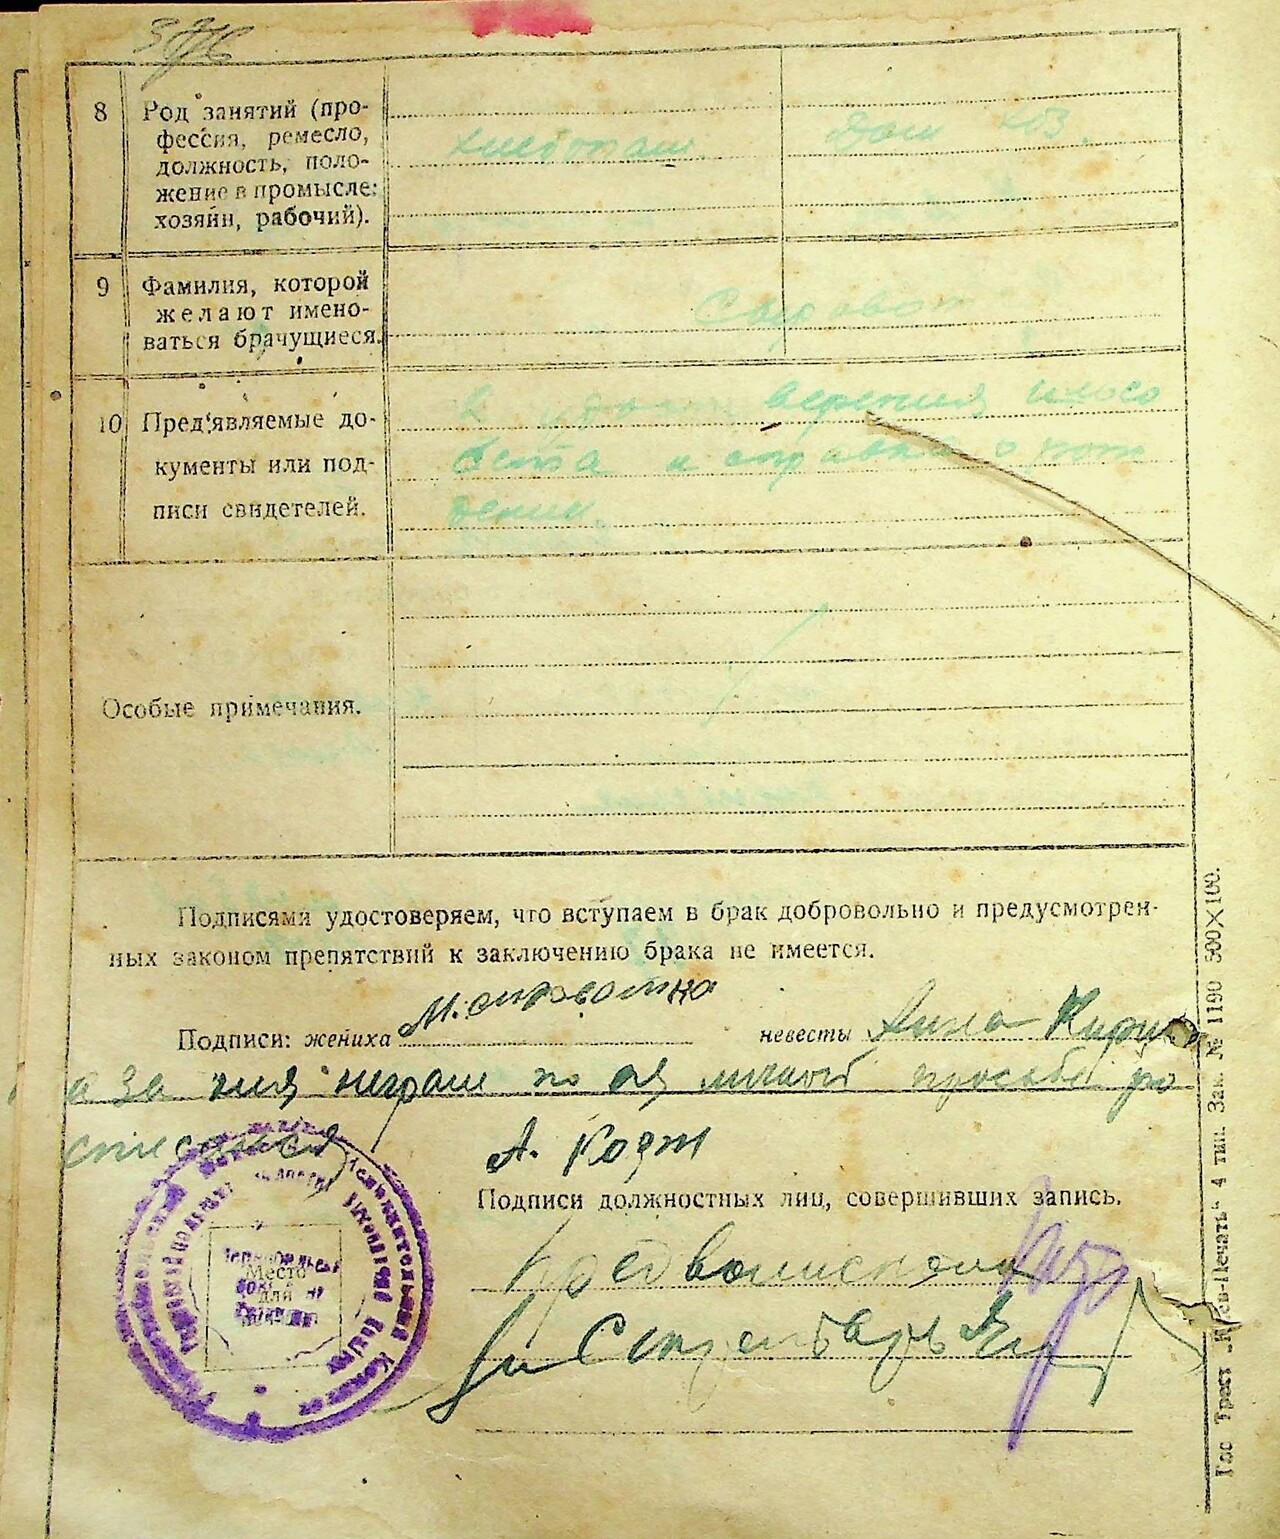 8
Род занятий (про-
фессия, ремесло,
должность, поло-
жение в промысле:
хозяйн, рабочий).
хлебопаш.
Дом хоз.
9
Фамилия, которой
желают имено-
ваться брачущиеся.
10
Пред'являемые до-
кументы или под-
писи свидетелей.
верения сельсо
вета и справка о рож
дении.
Особые примечания.
Подписями удостоверяем, что вступаем в брак добровольно и предусмотрен-
ных законом препятствий к заключению брака не имеется.
Подписи: жениха М.
невесты Анна
а за нея неграм по ея личной просьбе ро
списался
А.
Подписи должностных лиц, совершивших запись.
Пред
Место
для
печати
Секретарь
Гос Трест „Киев-Печать“ 4 тип. Зак. № 1190 500×100.